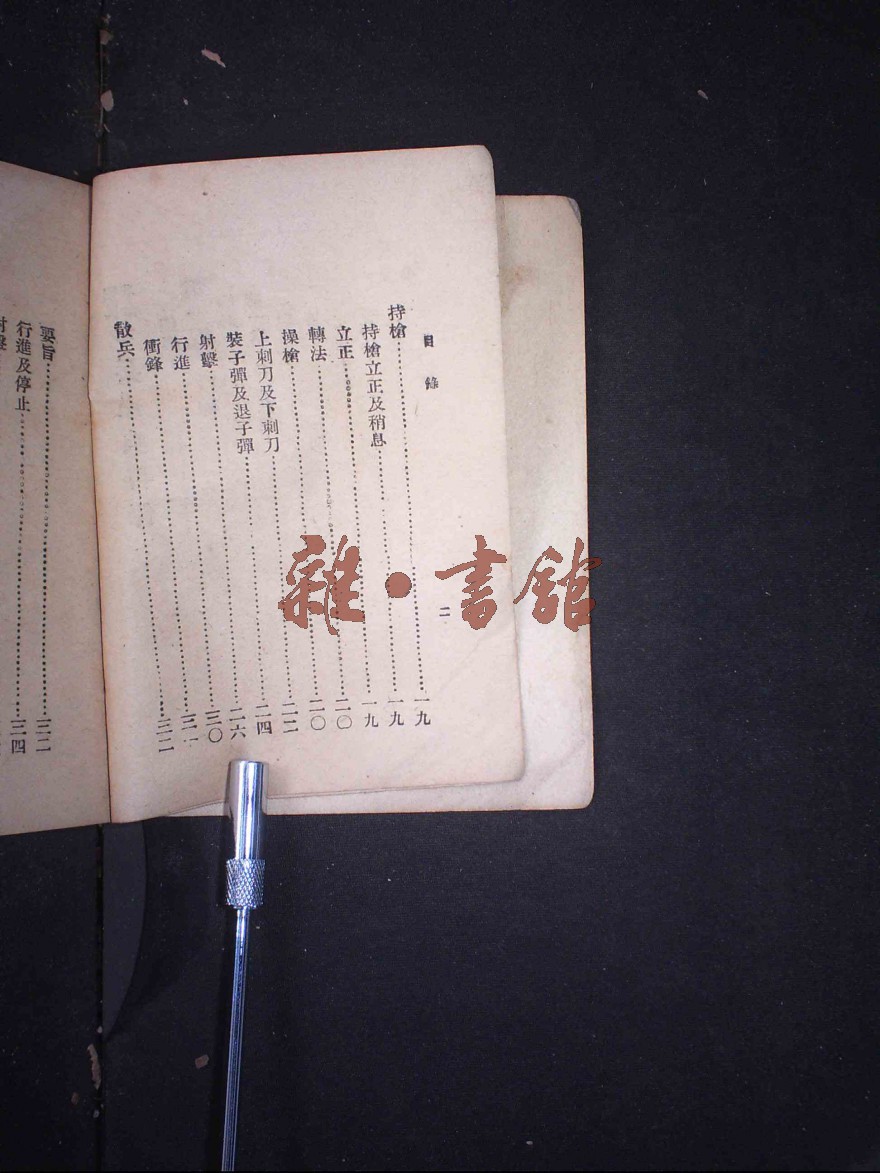 目錄
二
持槍……一九
持槍立正及稍息……一九
立正……一九
轉法……二〇
操槍……二〇
上刺刀及下刺刀……二二
裝子彈及退子彈……二四
射擊……二六
行進……三〇
衝鋒……三一
散兵……三二
要旨……三二
行進及停止……三四
射擊
雜·書館